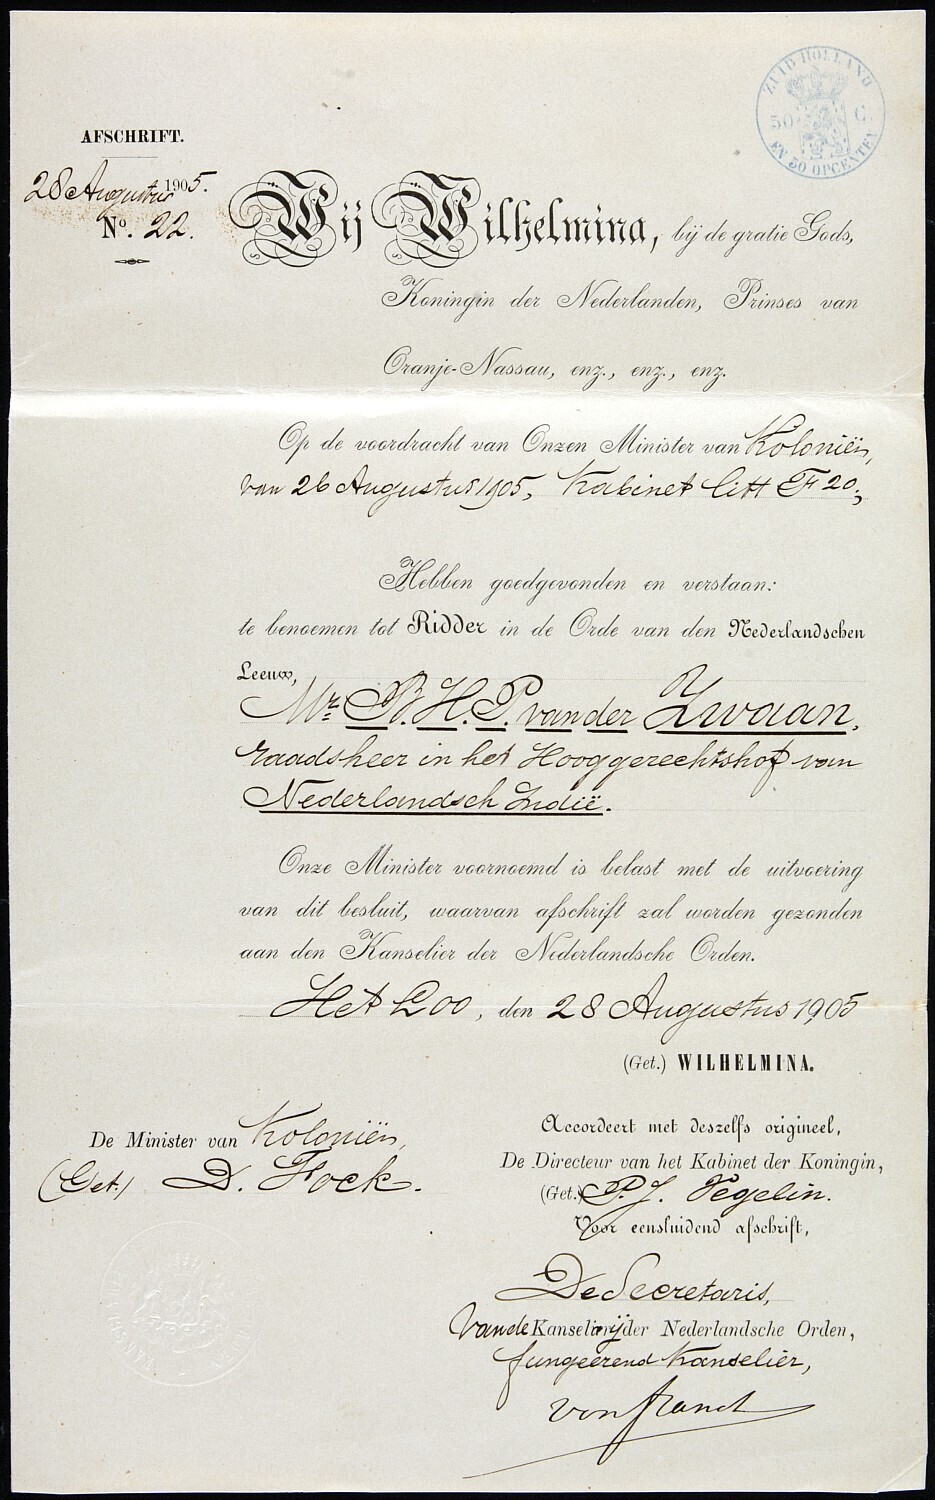 ZUID HOLLAND
50 C.
EN 50 OPCENTEN
AFSCHRIFT.
28 Augustus 1905.
No. 22.
Wij Wilhelmina, bij de gratie Gods,
Koningin der Nederlanden, Prinses van
Oranje-Nassau, enz., enz., enz.
Op de voordracht van Onzen Minister van Koloniën,
van 26 Augustus 1905, Kabinet litt F 20;
Hebben goedgevonden en verstaan:
te benoemen tot Ridder in de Orde van den Nederlandschen
Leeuw,
Mr. B.H.P. van der Zwaan,
raadsheer in het Hooggerechtshof van
Nederlandsch Indië.
Onze Minister voornoemd is belast met de uitvoering
van dit besluit, waarvan afschrift zal worden gezonden
aan den Kanselier der Nederlandsche Orden.
Het Loo, den 28 Augustus 1905
(Get.) WILHELMINA.
De Minister van Koloniën,
(Get.) D. Fock.
Accordeert met deszelfs origineel,
De Directeur van het Kabinet der Koningin,
(Get.) P.J. Vegelin.
Voor eensluidend afschrift,
De Secretaris,
van de Kanselarij der Nederlandsche Orden,
fungeerend Kanselier,